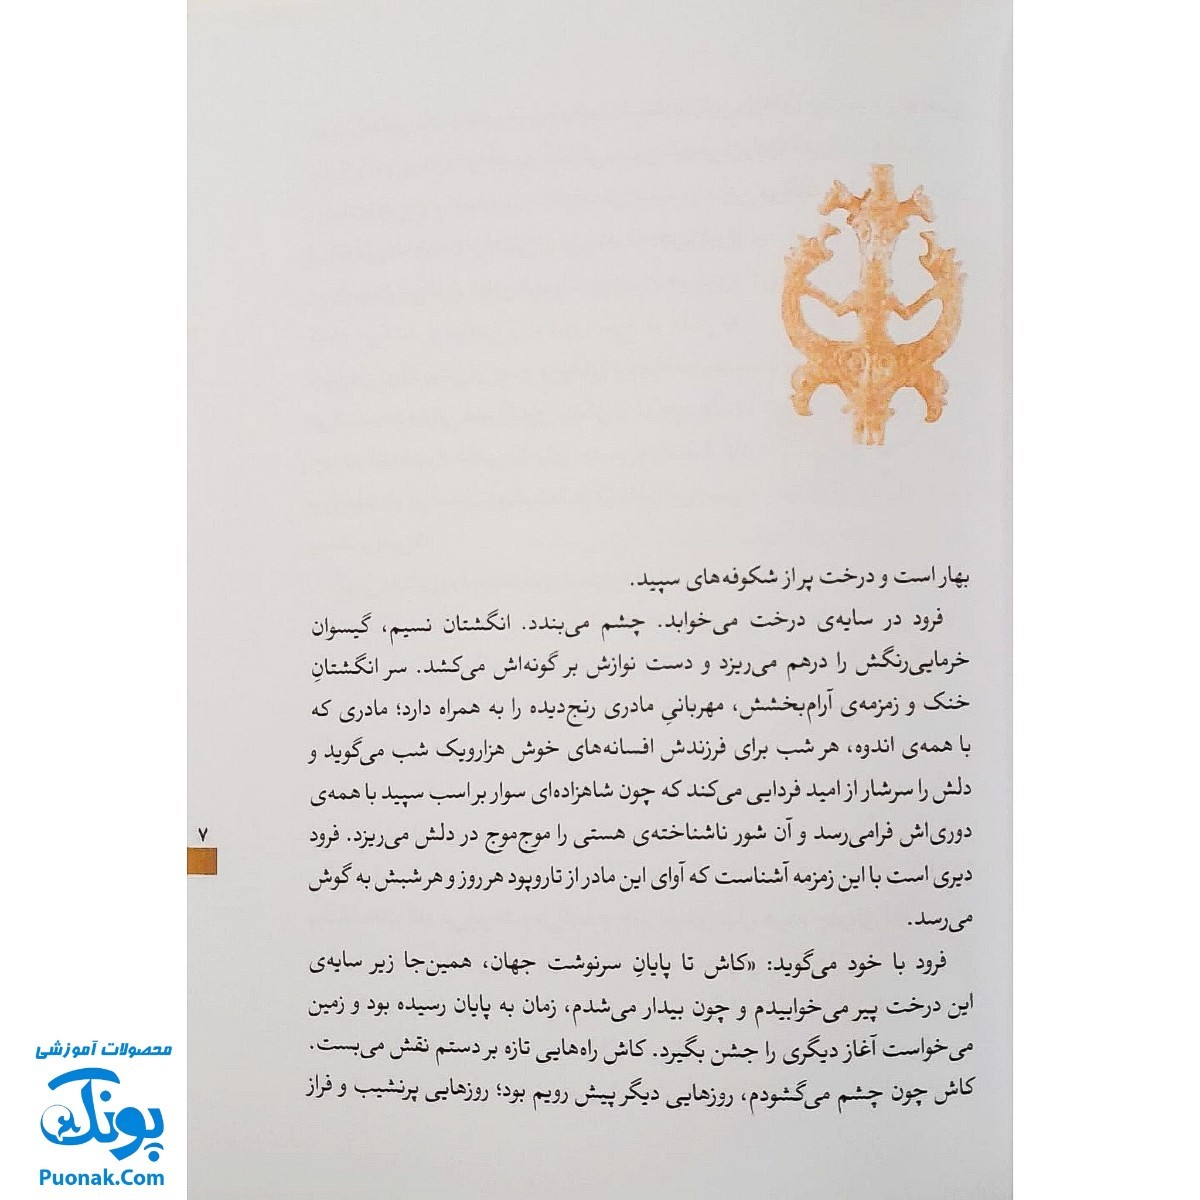 بهار است و درخت پر از شکوفه‌های سپید.
فرود در سایه‌ی درخت می‌خوابد. چشم می‌بندد. انگشتان نسیم، گیسوان
خرمایی‌رنگش را درهم می‌ریزد و دست نوازش بر گونه‌اش می‌کشد. سر انگشتانِ
خنک و زمزمه‌ی آرام‌بخشش، مهربانیِ مادری رنج‌دیده را به همراه دارد؛ مادری که
با همه‌ی اندوه، هر شب برای فرزندش افسانه‌های خوش هزارویک شب می‌گوید و
دلش را سرشار از امید فردایی می‌کند که چون شاهزاده‌ای سوار بر اسب سپید با همه‌ی
دوری‌اش فرامی‌رسد و آن شور ناشناخته‌ی هستی را موج‌موج در دلش می‌ریزد. فرود
۷
دیری است با این زمزمه آشناست که آوای این مادر از تاروپود هر روز و هر شبش به گوش
می‌رسد.
فرود با خود می‌گوید: «کاش تا پایانِ سرنوشت جهان، همین‌جا زیر سایه‌ی
این درخت پیر می‌خوابیدم و چون بیدار می‌شدم، زمان به پایان رسیده بود و زمین
می‌خواست آغاز دیگری را جشن بگیرد. کاش راه‌هایی تازه بر دستم نقش می‌بست.
کاش چون چشم می‌گشودم، روزهایی دیگر پیش رویم بود؛ روزهایی پرنشیب و فراز
محصولات آموزشی
پونک
Puonak.Com